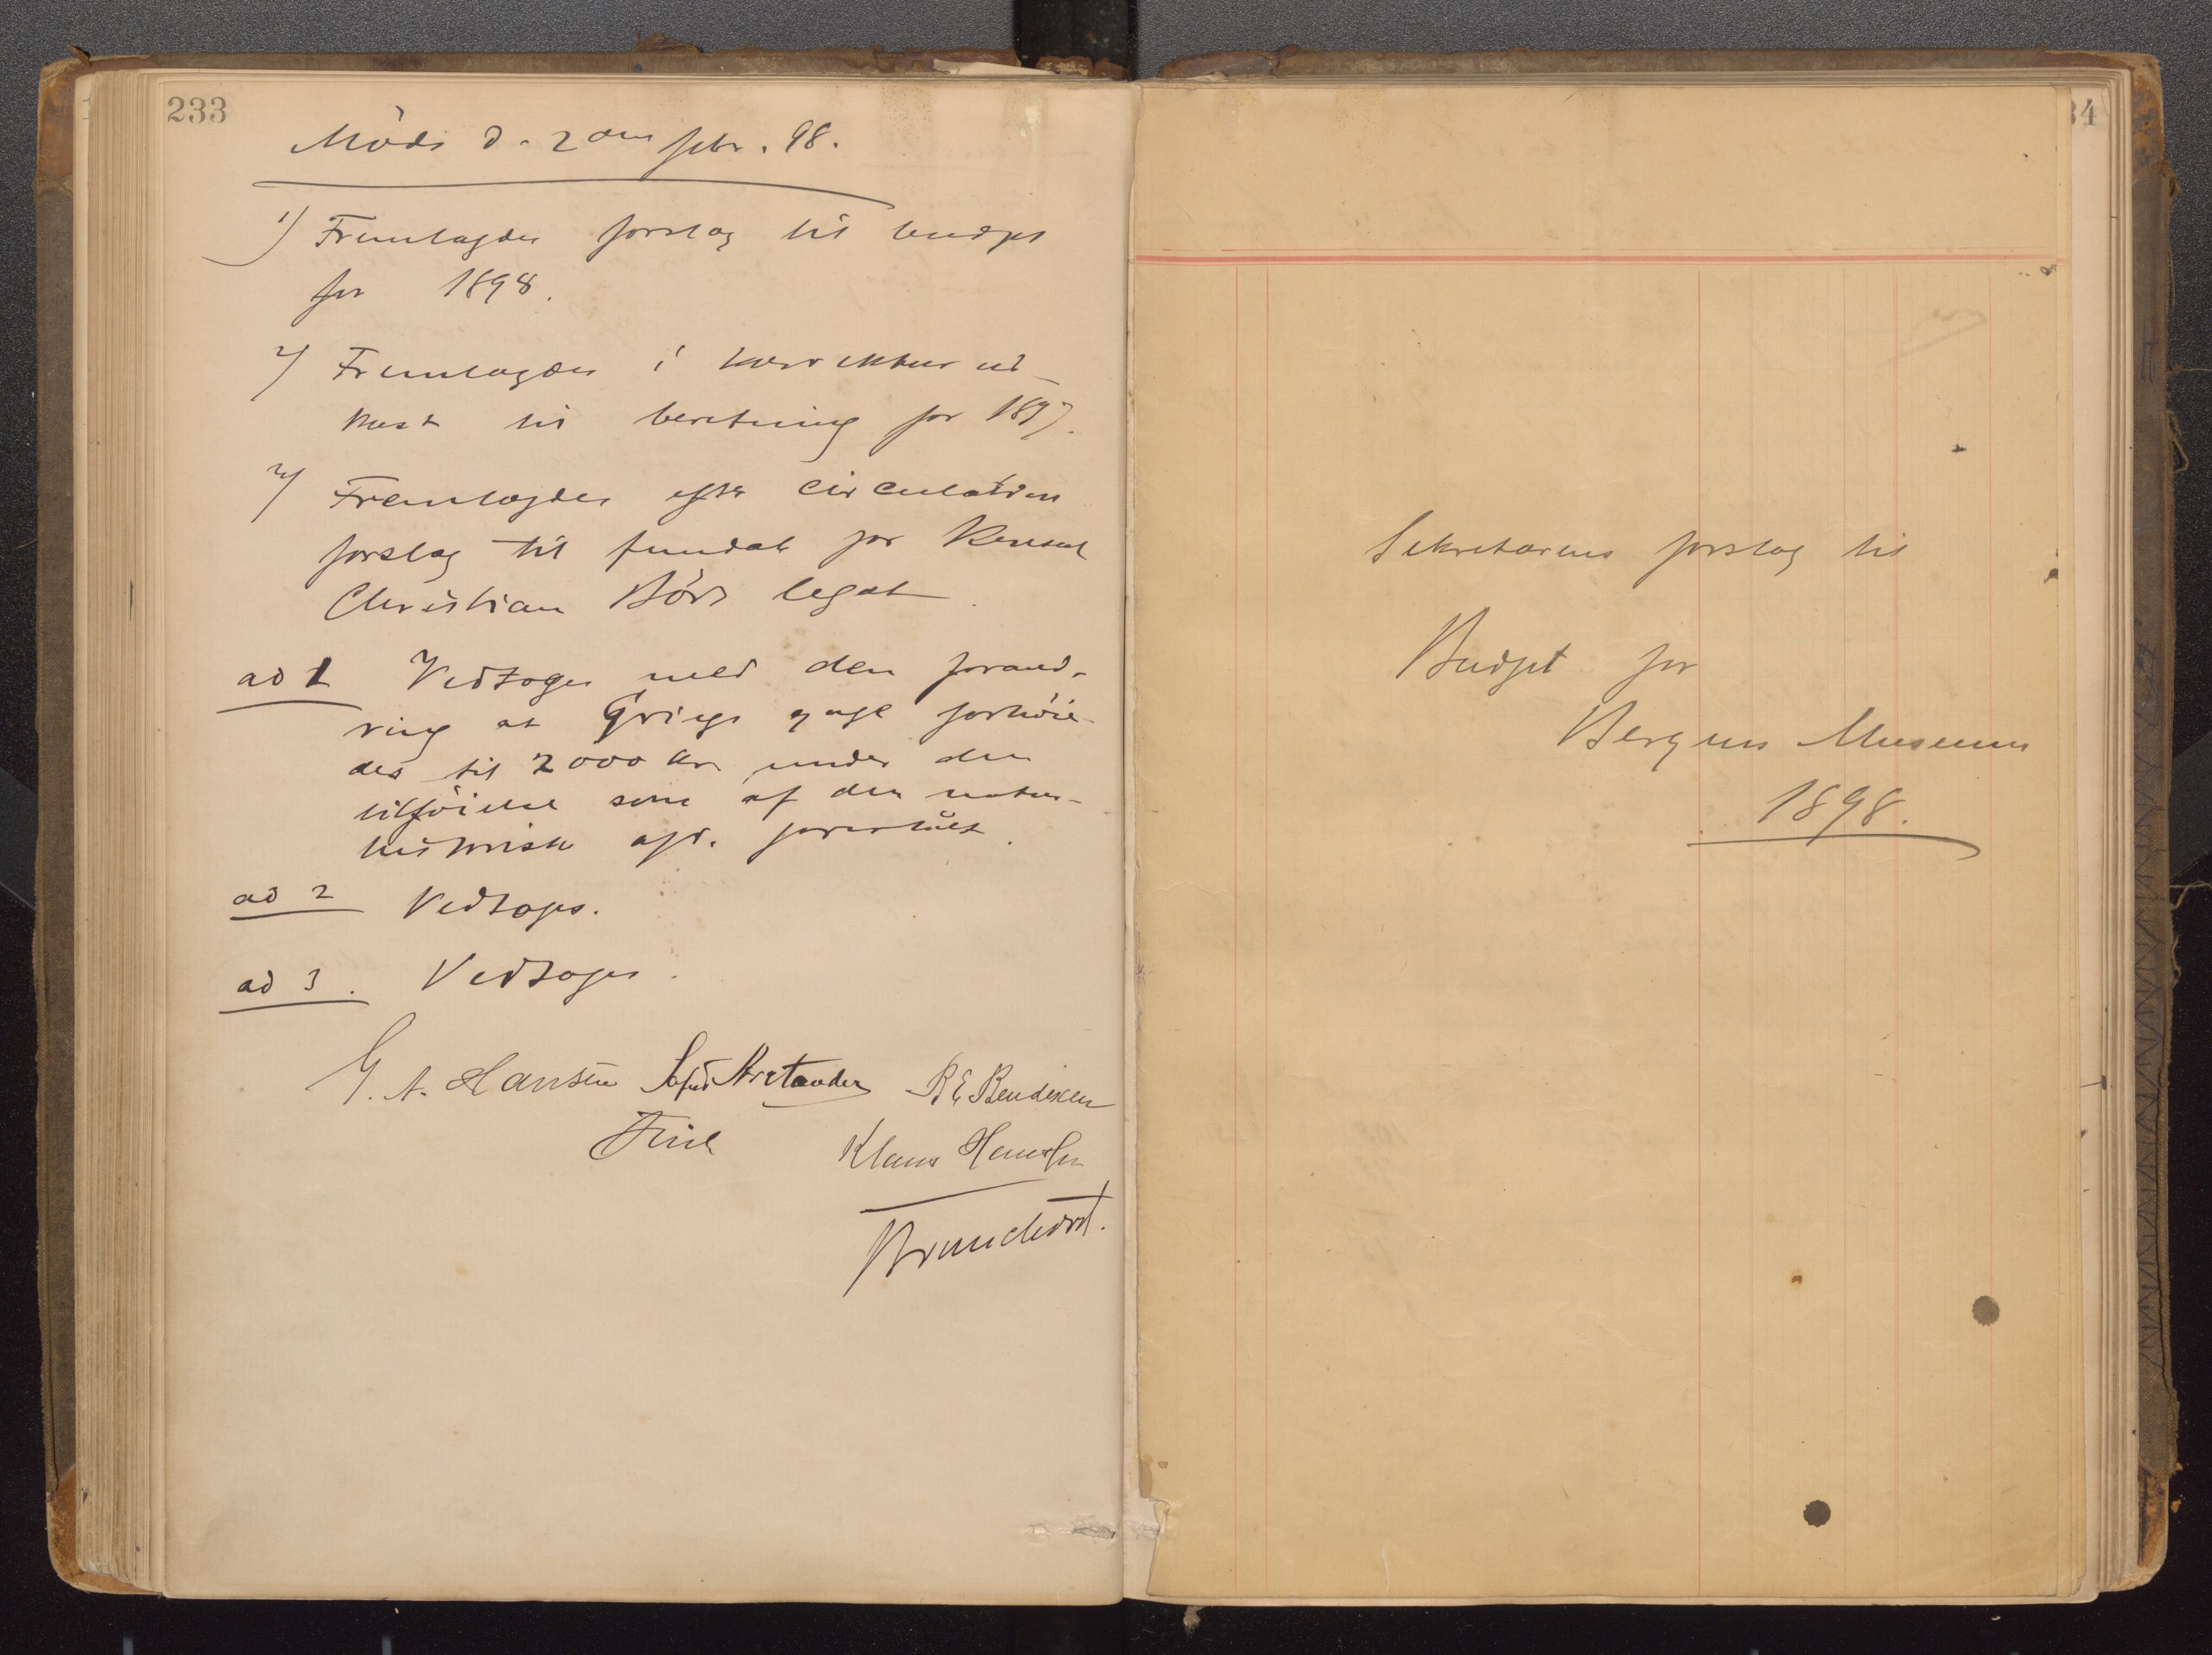 233
Möde d. 2den febr. 98.
1) Fremlagdes forslag til budget
for 1898.
2) Fremlagdes i korrektur ud-
kast til beretning for 1897.
3) Fremlagdes efter circulation
forslag til fundats for Konsul
Christian Börs legat.
ad 1 Vedtoges med den forand-
ring at Griegs gage forhöie-
des til 2000 kr. under den
tilföielse som af den natur-
historiske afd. foreslået.
ad 2 Vedtoges.
ad 3. Vedtoges.
G. A. Hansen B E Bendixen
Klaus Hanssen
Brunchorst.
34
Sekretærens forslag til
Budget for
Bergens Museum
1898.